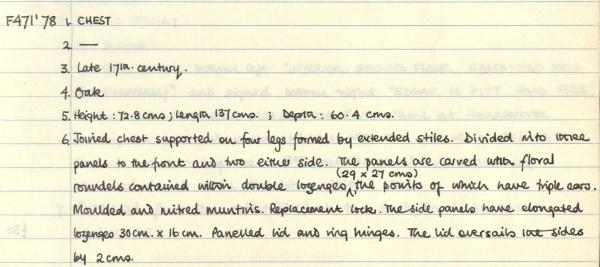 F471'78 1. CHEST
2. —
3. Late 17th. century.
4. Oak
5. Height: 72.8 cms; Length 137 cms. ; Depth: 60.4 cms.
6. Joined chest supported on four legs formed by extended stiles. Divided into three
panels to the front and two either side. The panels are carved with floral
(29 x 27 cms)
roundels contained within double lozenges, the points of which have triple ears.
Moulded and mitred muntins. Replacement lock. The side panels have elongated
lozenges 30cm. x 16 cm. Panelled lid and ring hinges. The lid oversails the sides
by 2 cms.